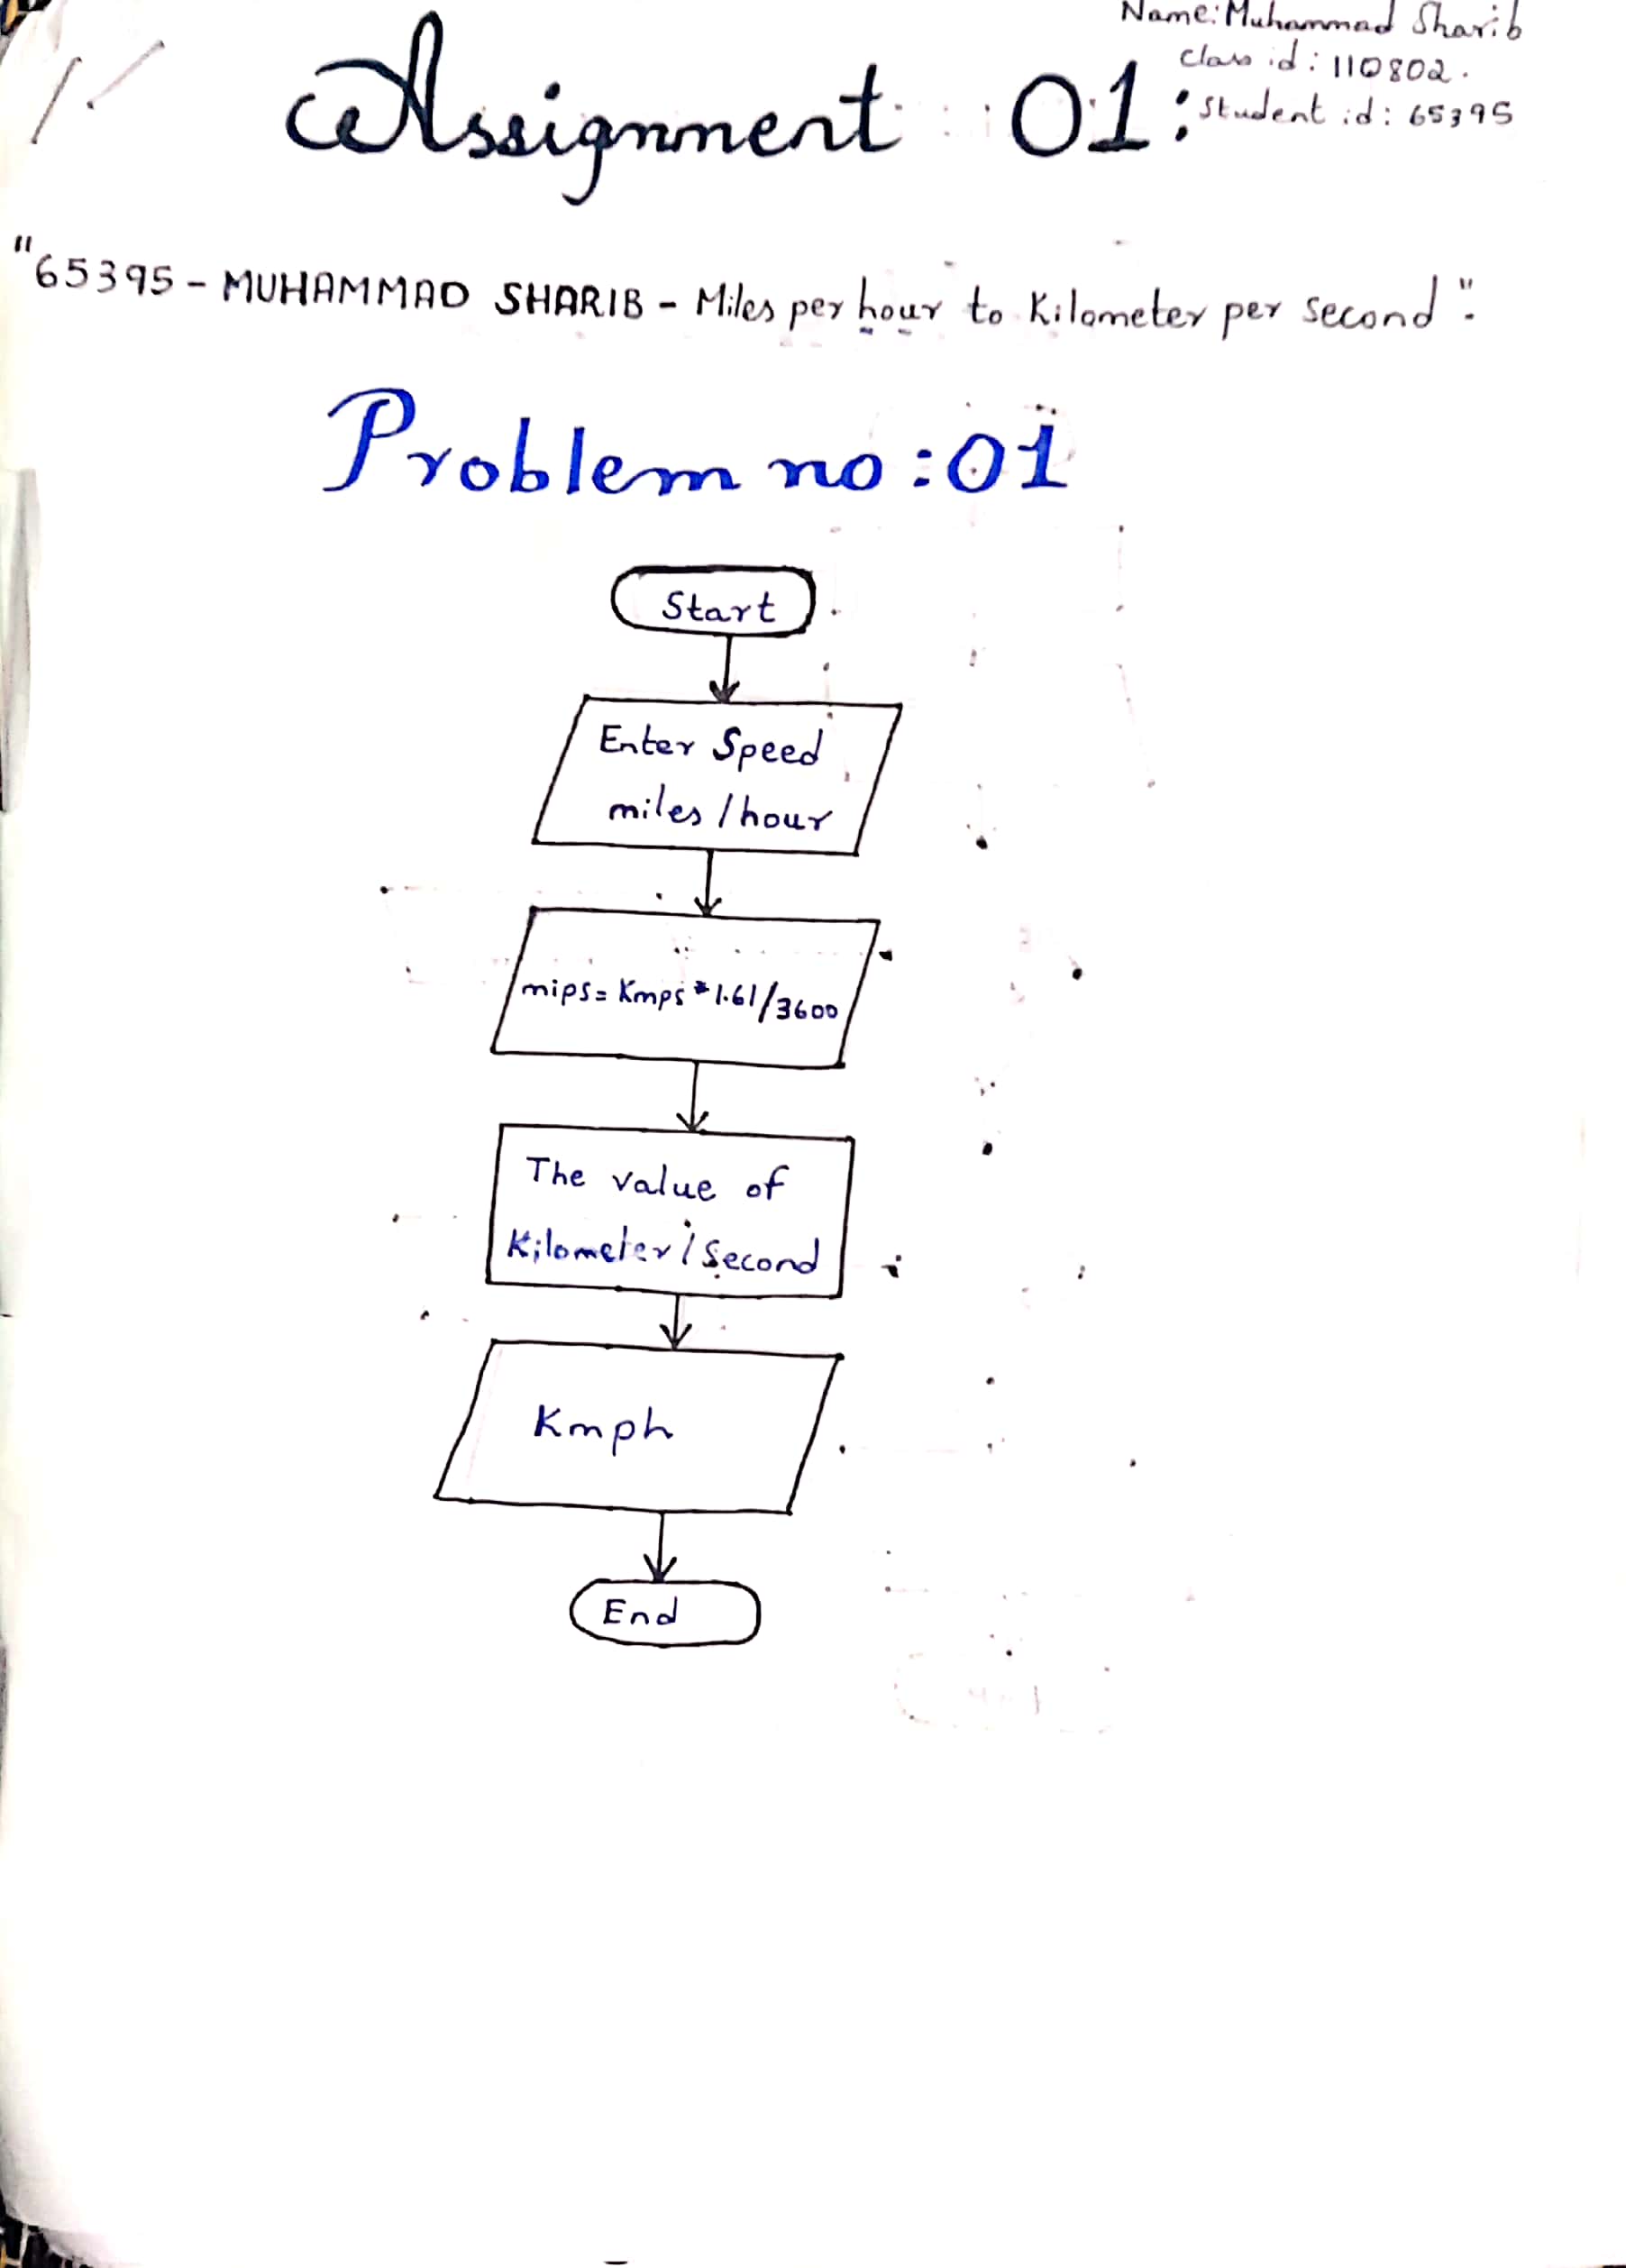 Name: Muhammad Sharib
Class id: 110802.
Assignment 01:
Student id: 65395
"65395 - MUHAMMAD SHARIB - Miles per hour to Kilometer per second".
Problem no:01
Start
Enter Speed
miles/hour
mips= Kmps*1.61/3600
The value of
Kilometer/Second
Kmph
End